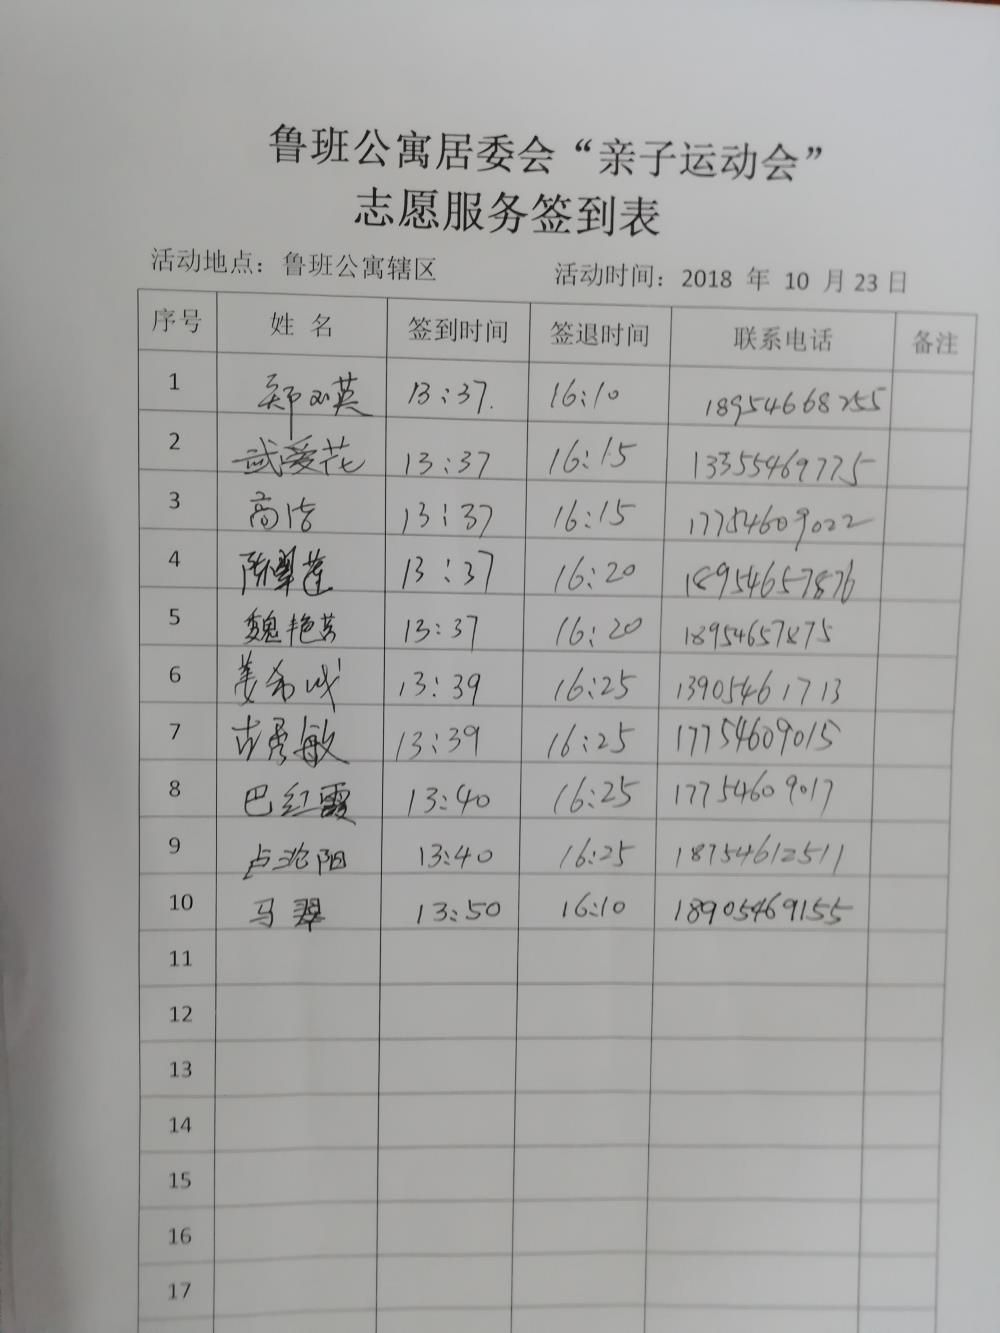 鲁班公寓居委会“亲子运动会”
志愿服务签到表
活动地点：鲁班公寓辖区 活动时间：2018 年 10 月 23 日
序号 姓 名 签到时间 签退时间 联系电话 备注
1 郑邓英 13:37. 16:10 18954668255
2 武爱花 13:37 16:15 13355469775
3 高洁 13:37 16:15 17754609022
4 陈翠莲 13:37 16:20 18954657876
5 魏艳芳 13:37 16:20 18954657875
6 姜希成 13:39 16:25 13905461713
7 古秀敏 13:39 16:25 17754609015
8 巴红霞 13:40 16:25 17754609017
9 卢沿阳 13:40 16:25 18754612511
10 马翠 13:50 16:10 18905469155
11
12
13
14
15
16
17